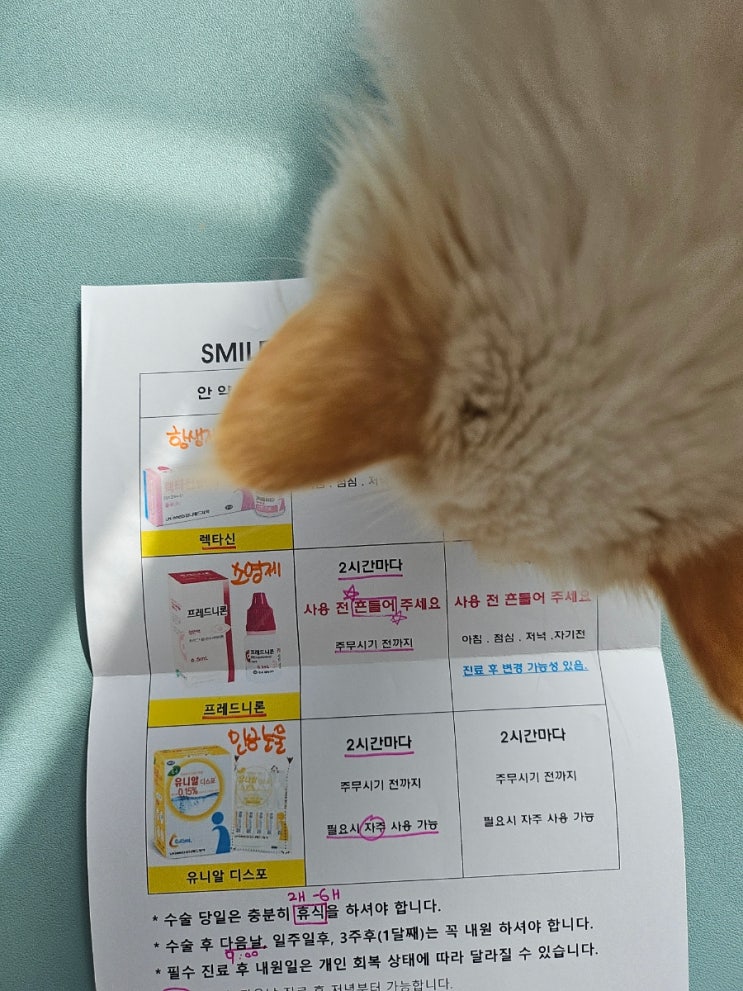 SMIL
안 약
항생
렉타신
소염제
프레드니론
프레드니론
2시간마다
사용 전 흔들어 주세요
주무시기 전까지
사용 전 흔들어 주세요
아침 . 점심 . 저녁 .자기전
진료 후 변경 가능성 있음.
인공눈물
유니알 디스포
0.15%
유니알 디스포
2시간마다
주무시기 전까지
필요시 자주 사용 가능
2시간마다
주무시기 전까지
필요시 자주 사용 가능
2H -6H
* 수술 당일은 충분히 휴식을 하셔야 합니다.
* 수술 후 다음날, 일주일후, 3주후(1달째)는 꼭 내원 하셔야 합니다.
9:00
* 필수 진료 후 내원일은 개인 회복 상태에 따라 달라질 수 있습니다.
진료 후 저녁부터 가능합니다.